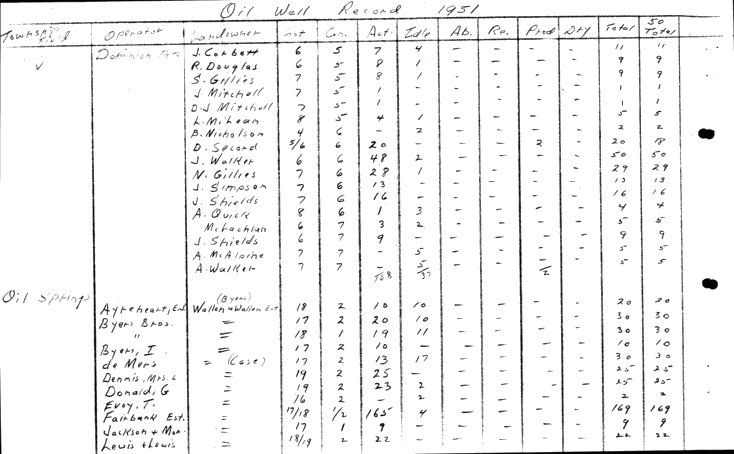 Oil Well Record 1951
Township Operator Landowner Lot Con. Act. Idle Ab. Re. Prod Dry Total 50 Total
Dominion J. Corbett 6 5 7 4 - - - - 11 11
✓ R. Douglas 6 5 8 1 - - - - 9 9
S. Gillies 7 5 8 1 - - - - 9 9
J Mitchell 7 5 1 - - - - - 1 1
D.J Mitchell 7 5 1 - - - - - 1 1
L. McLean 8 5 4 1 - - - - 5 5
B. Nicholson 4 6 - 2 - - - - 2 2
D. Secord 5/6 6 20 - - - 2 - 20 18
J. Walker 6 6 48 2 - - - - 50 50
N. Gillies 7 6 28 1 - - - - 29 29
J. Simpson 7 6 13 - - - - - 13 13
J. Shields 7 6 16 - - - - - 16 16
A. Quick 8 6 1 3 - - - - 4 4
McLachlan 6 7 3 2 - - - - 5 5
J. Shields 6 7 9 - - - - - 9 9
A. McAlpine 7 7 - 5 - - - - 5 5
A. Walker 7 7 - 5 - - - - 5 5
168 37 2
Oil Springs
(Byers)
Ayreheart, Ed Wallen & Wallen Est. 18 2 10 10 - - - - 20 20
Byers Bros. = 17 2 20 10 - - - - 30 30
" = 18 1 19 11 - - - - 30 30
Byers, I = 17 2 10 - - - - - 10 10
de Mers = (Case) 17 2 13 17 - - - - 30 30
Dennis, Mrs. L = 19 2 25 - - - - - 25 25
Donald, G = 19 2 23 2 - - - - 25 25
Evoy, T. = 16 2 - 2 - - - - 2 2
Fairbank Est. = 17/18 1/2 165 4 - - - - 169 169
Jackson & Mor. = 17 1 9 - - - - - 9 9
Lewis & Lewis = 18/19 2 22 - - - - - 22 22